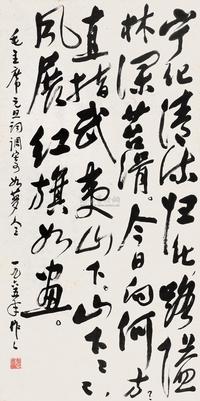 宁化清流归化路隘
林深苔滑。今日向何方?
直指武夷山下。山下〻〻,
风展红旗如画。
毛主席元旦词调寄如梦令 一九六五年作